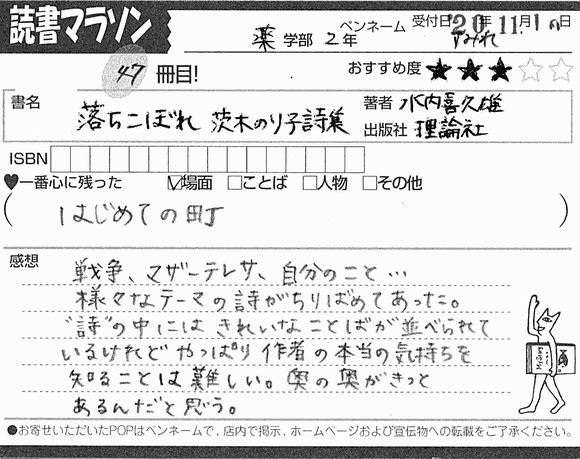 読書マラソン
薬 学部 2 年 ペンネーム すみれ 受付日 '20年 11月 10日
47 冊目! おすすめ度 ★★★☆☆
書名 落ちこぼれ 茨木のり子詩集 著者 水内喜久雄
出版社 理論社
ISBN
♥一番心に残った ☑場面 □ことば □人物 □その他
( はじめての町 )
感想
戦争、マザーテレサ、自分のこと…
様々なテーマの詩がちりばめてあった。
"詩"の中には きれいなことばが並べられて
いるけれど やっぱり 作者の本当の気持ちを
知ることは難しい。奥の奥がきっと
あるんだと思う。
●お寄せいただいたPOPはペンネームで、店内で掲示、ホームページおよび宣伝物への転載をご了承ください。